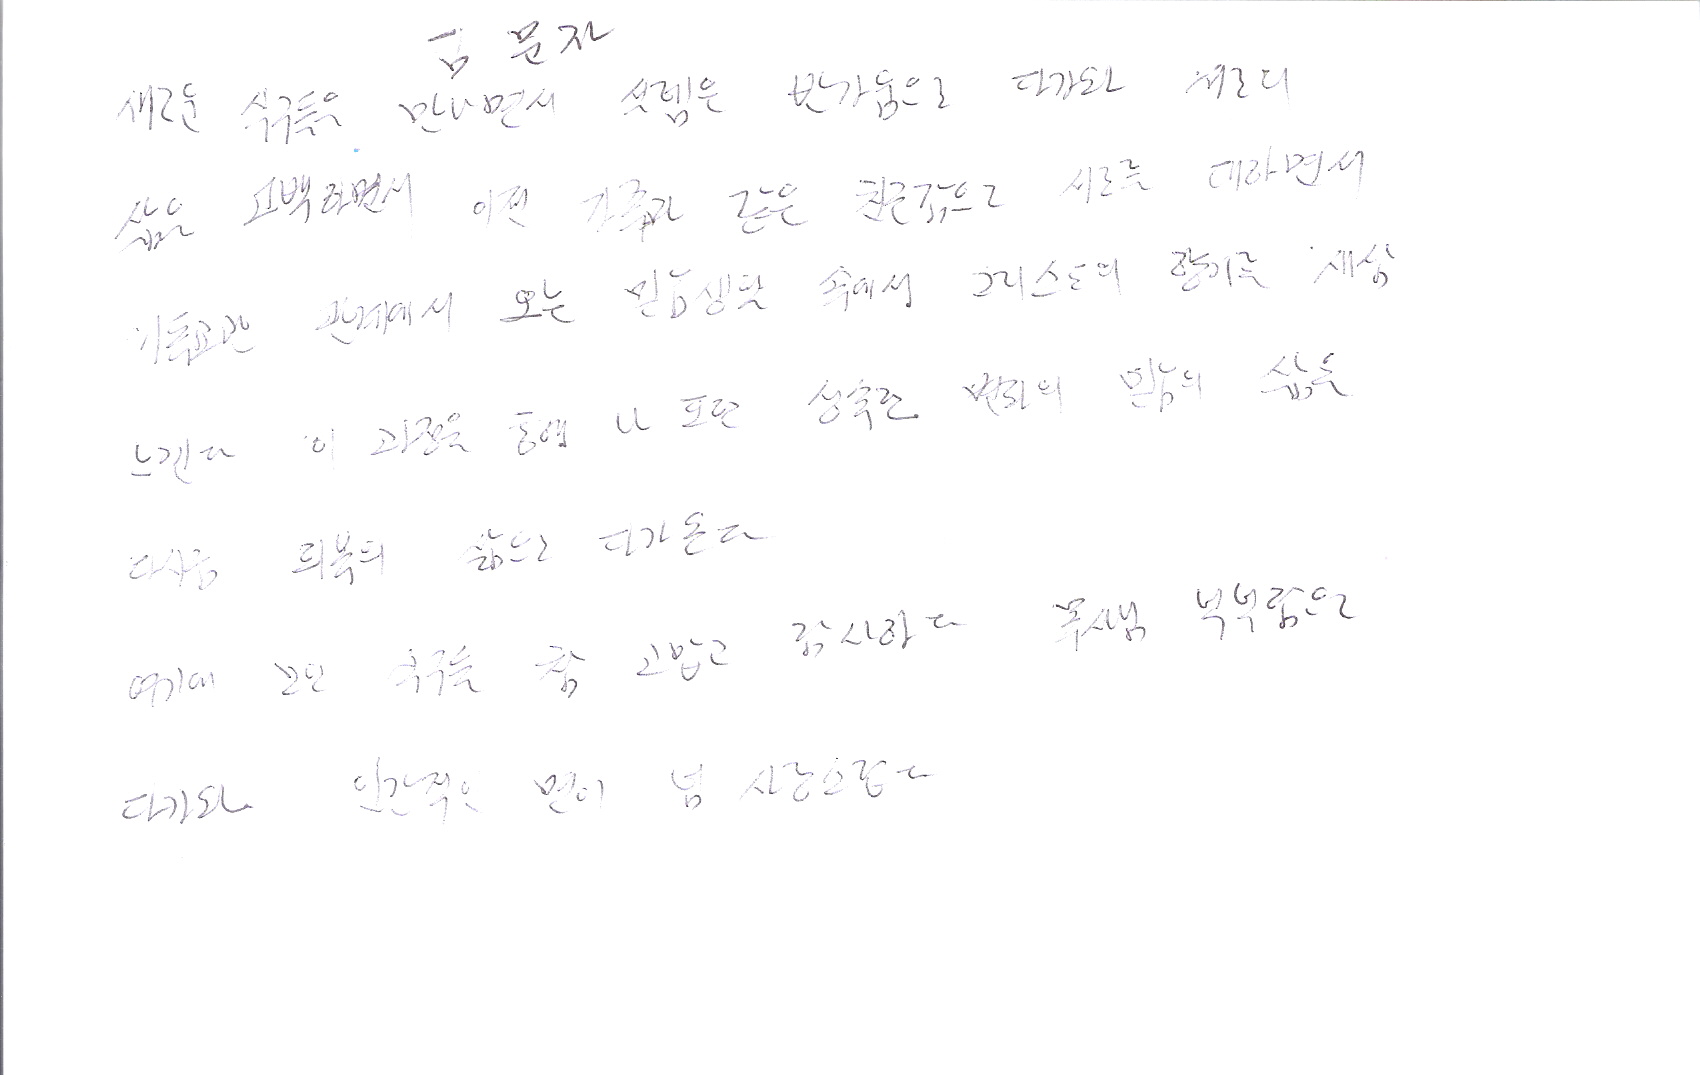 문자
새로운 식구들을 만나면서 설렘은 반가움으로 다가와 서로의
삶을 고백하면서 이젠 가족과 같은 친근감으로 서로를 대하면서
관계에서 오는 믿음생활 속에서 그리스도의 향기를 새삼
느낀다 이 과정을 통해 나 또한 성숙한 변화의 믿음의 삶을
다시금 회복의 삶으로 다가온다
여기에 모인 식구들 참 고맙고 감사하다 목사님 부부람으로
다가와 인간적인 면이 넘 사랑스럽다